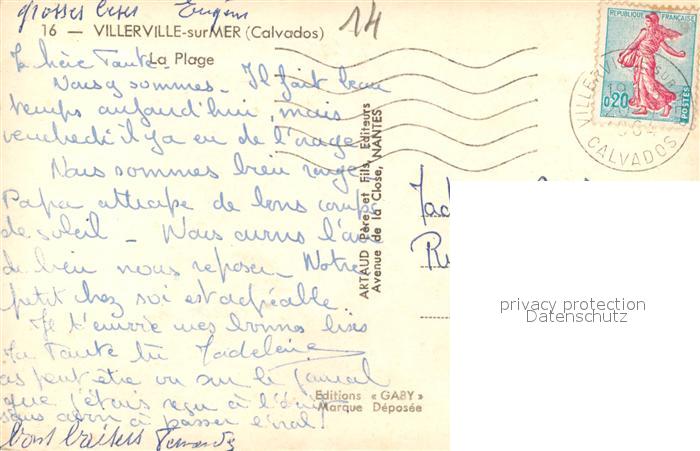 grosses bises Eugène
14
16 — VILLERVILLE-surMER (Calvados)
La Plage
RÉPUBLIQUE FRANÇAISE
0,20
POSTES
VILLERVILLE-SUR-
CALVADOS
Tante
Nous y sommes - Il fait beau
temps aujourd'hui, mais
vendredi il y a eu de l'orage
Nous sommes bien
Papa attrape de bons coups
de soleil - Nous avons l'air
de bien nous reposer. Notre
petit chez soi est agréable
Je t'envoie mes bonnes bises
Ta Tante tu
as peut etre vu sur le Journal
que j'étais reçu à l'écrit
sans avoir à passer l'oral!
bons baisers
ARTAUD Père et Fils, Editeurs
Avenue de la Close, NANTES
Editions « GABY »
Marque Déposée
privacy protection
Datenschutz